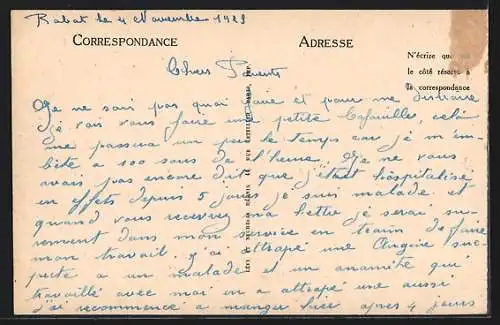 Rabat le 4 Novembre 1929
CORRESPONDANCE
ADRESSE
N'écrire que sur
le côté réservé à
la correspondance
Chers Parents
Je ne sais pas quoi faire et pour me distraire
je vais vous faire une petite bafouille, celà
me passera un peu le temps car je m'em-
bête a 100 sous de l'heure. Je ne vous
avais pas encore dit que j'étais hôspitalisé
en effets depuis 5 jours je suis malade et
quand vous recevrez ma lettre je serai su-
rement dans mon service en train de faire
mon travail. j'ai attrapé une Angine sus-
pecte a un malade et un anamite qui
travaillé avec moi en a attrapé une aussi
j'ai recommencé a manger hier apres 4 jours